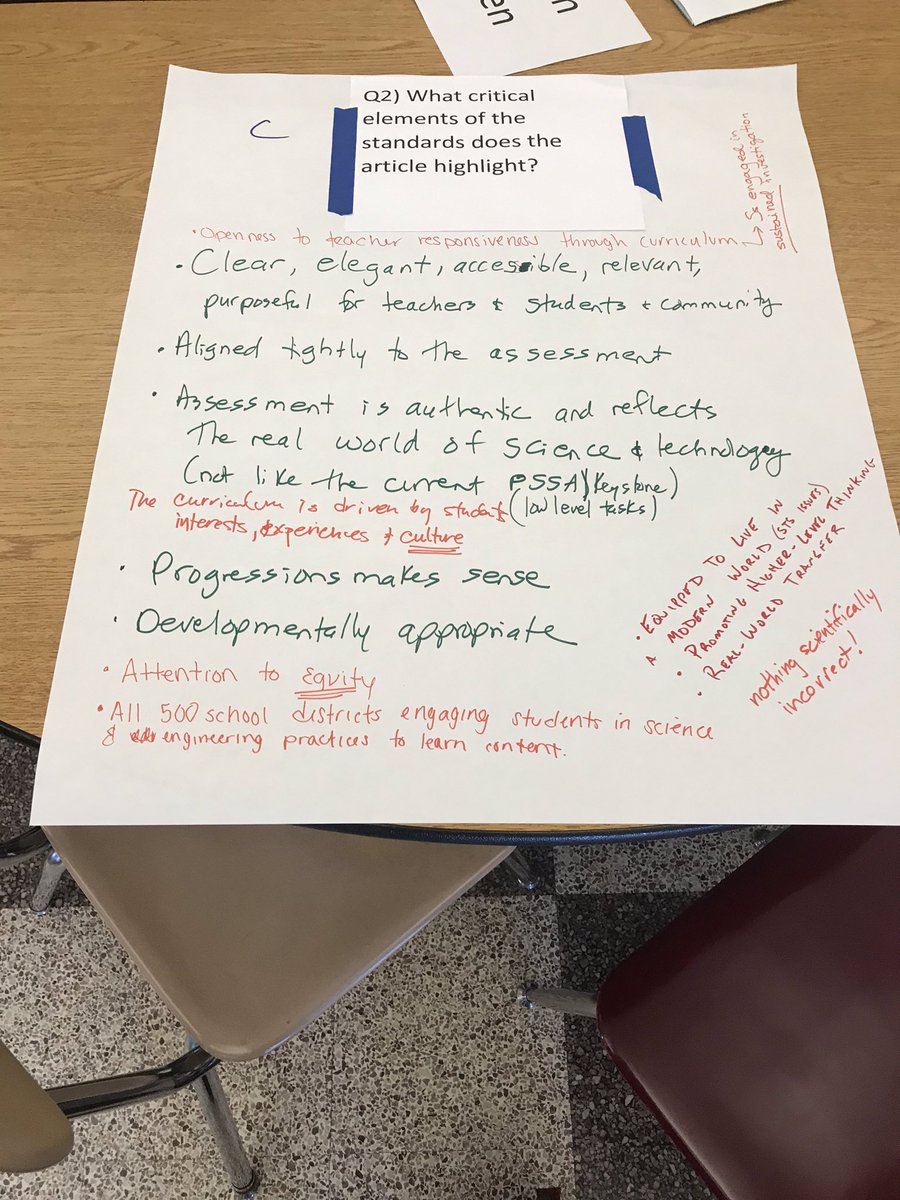 en
n
Q2) What critical
elements of the
standards does the
article highlight?
C
Ss engaged in
sustained investigation
• Openness to teacher responsiveness through curriculum
• Clear, elegant, accessible, relevant,
purposeful for teachers & students & community
• Aligned tightly to the assessment
• Assessment is authentic and reflects
The real world of science & technology
(not like the current PSSA/Keystone)
(low level tasks)
The curriculum is driven by students
interests, experiences & culture
• Progressions makes sense
• Developmentally appropriate
• EQUIPPED TO LIVE IN
A MODERN WORLD (STS ISSUES)
• PROMOTING HIGHER-LEVEL THINKING
• REAL-WORLD TRANSFER
nothing scientifically
incorrect!
• Attention to Equity
• All 500 school districts engaging students in science
& engineering practices to learn content.